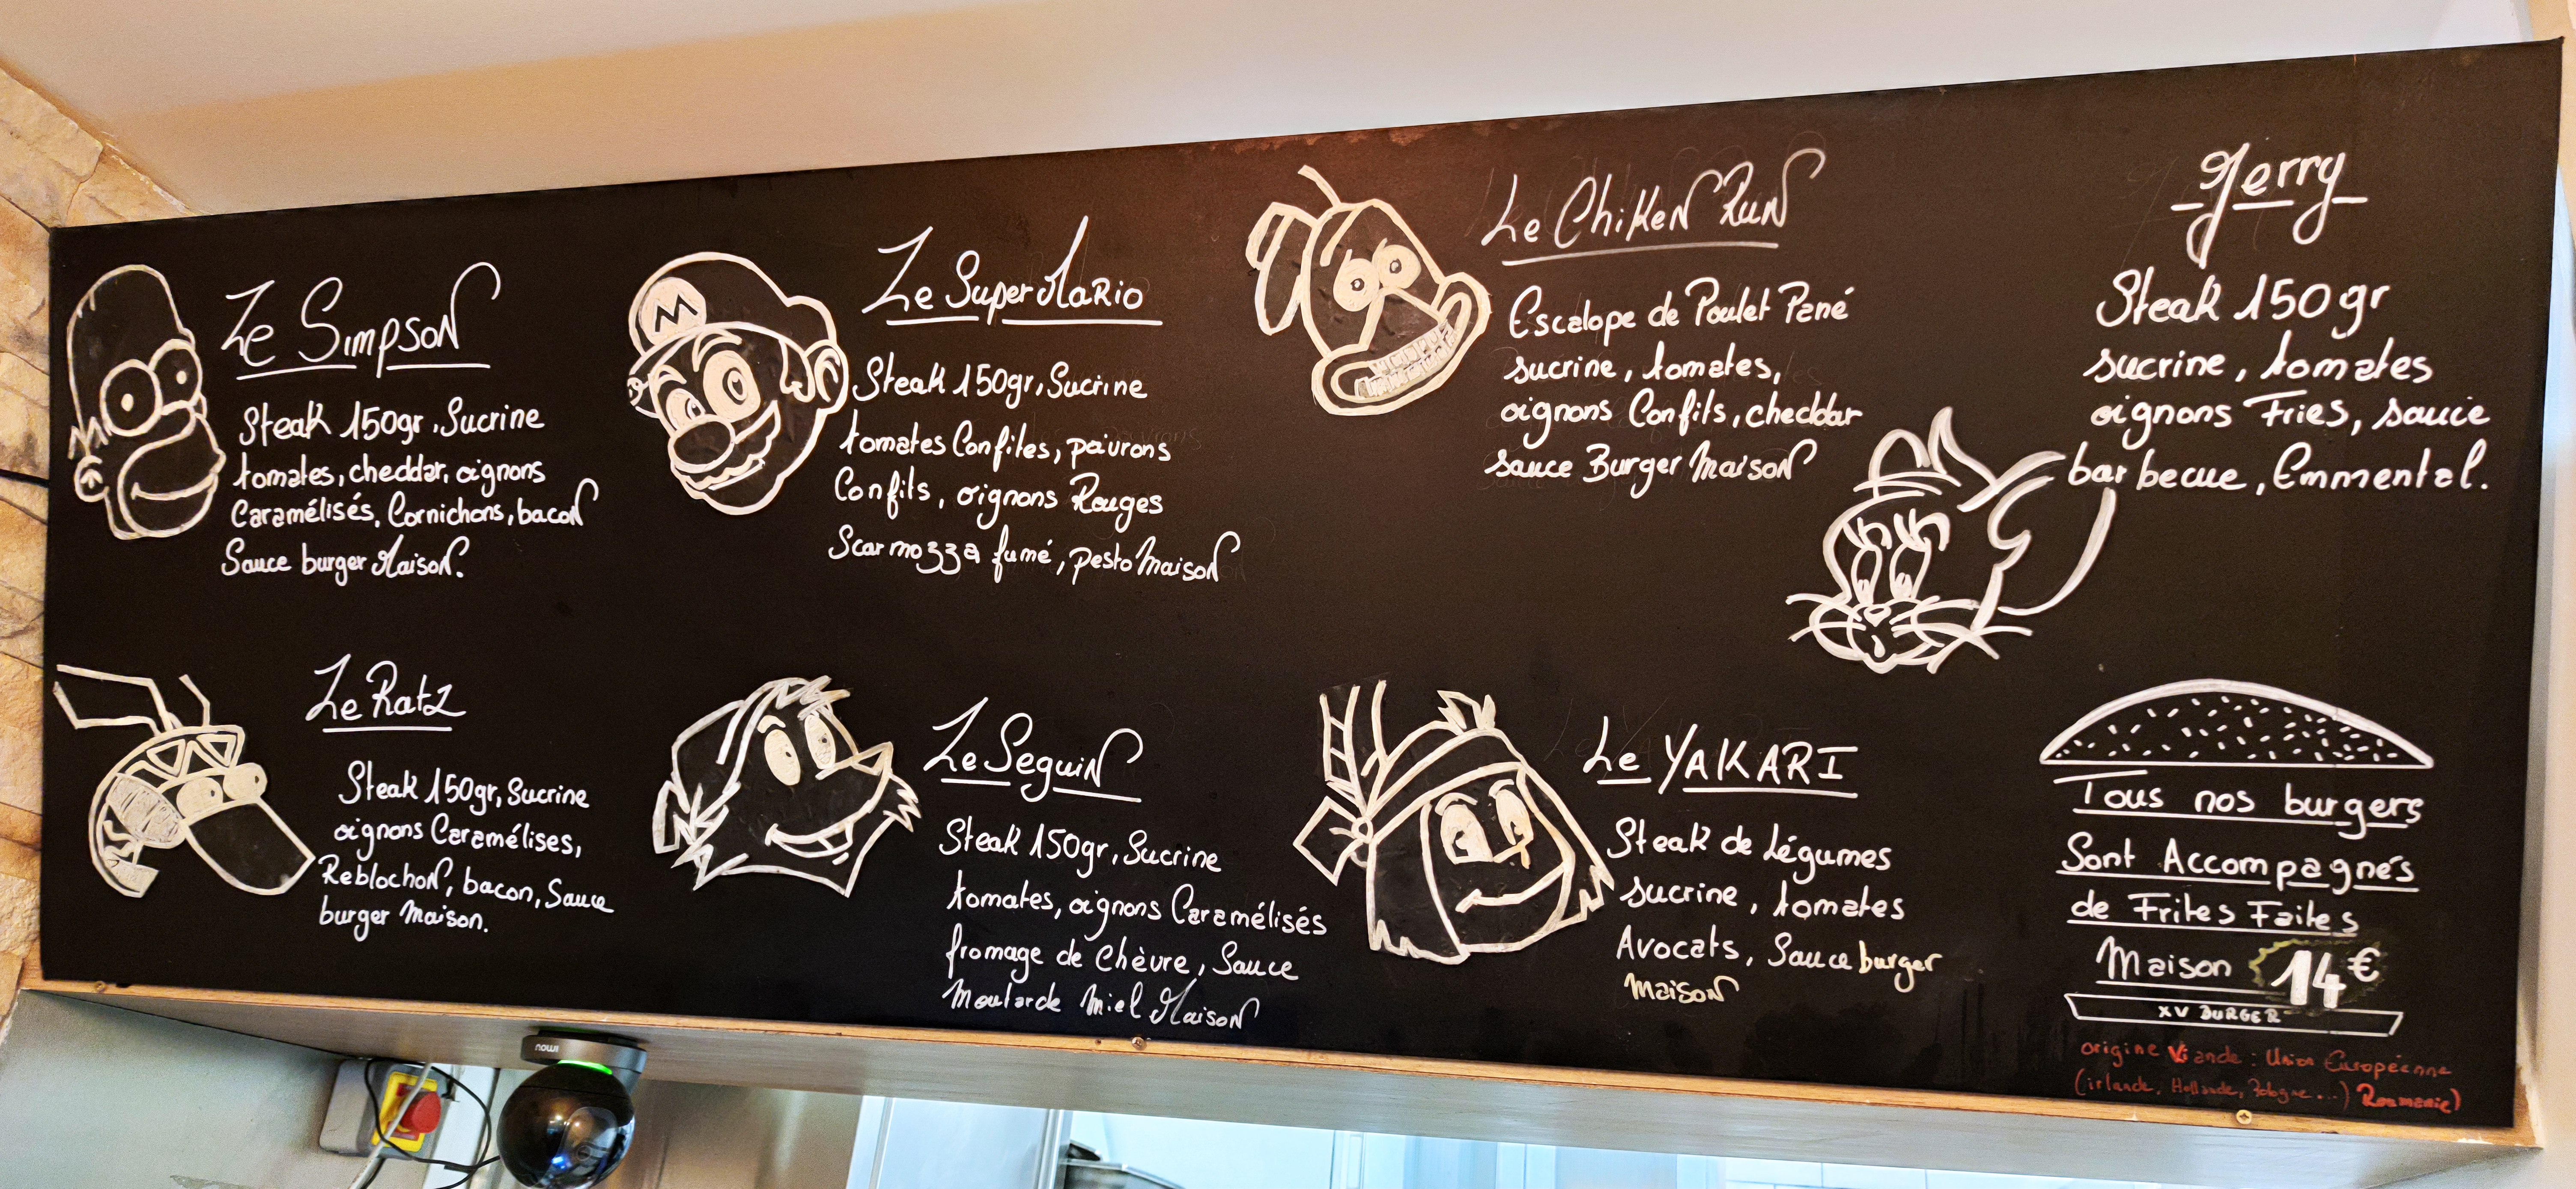 Le Simpson
Steak 150gr, Sucrine
tomates, cheddar, oignons
Caramélisés, Cornichons, bacon
Sauce burger Maison.
M
Le Super Mario
Steak 150gr, Sucrine
tomates Confites, poivrons
Confits, oignons Rouges
Scarmozza fumé, pesto Maison
Le Chiken Run
Escalope de Poulet Pané
sucrine, tomates,
oignons Confits, cheddar
sauce Burger Maison
Jerry
Steak 150gr
sucrine, tomates
oignons Fries, sauce
barbecue, Emmental.
Le Ratz
Steak 150gr, Sucrine
oignons Caramélises,
Reblochon, bacon, Sauce
burger Maison.
Le Seguin
Steak 150gr, Sucrine
tomates, oignons Caramélisés
fromage de Chèvre, Sauce
Moutarde Miel Maison
Le YAKARI
Steak de Légumes
sucrine, tomates
Avocats, Sauce burger
Maison
Tous nos burgers
Sont Accompagnés
de Frites Faites
Maison 14€
XV BURGER
origine Viande : Union Européenne
(irlande, Hollande, Pologne...) Roumanie)
nowi